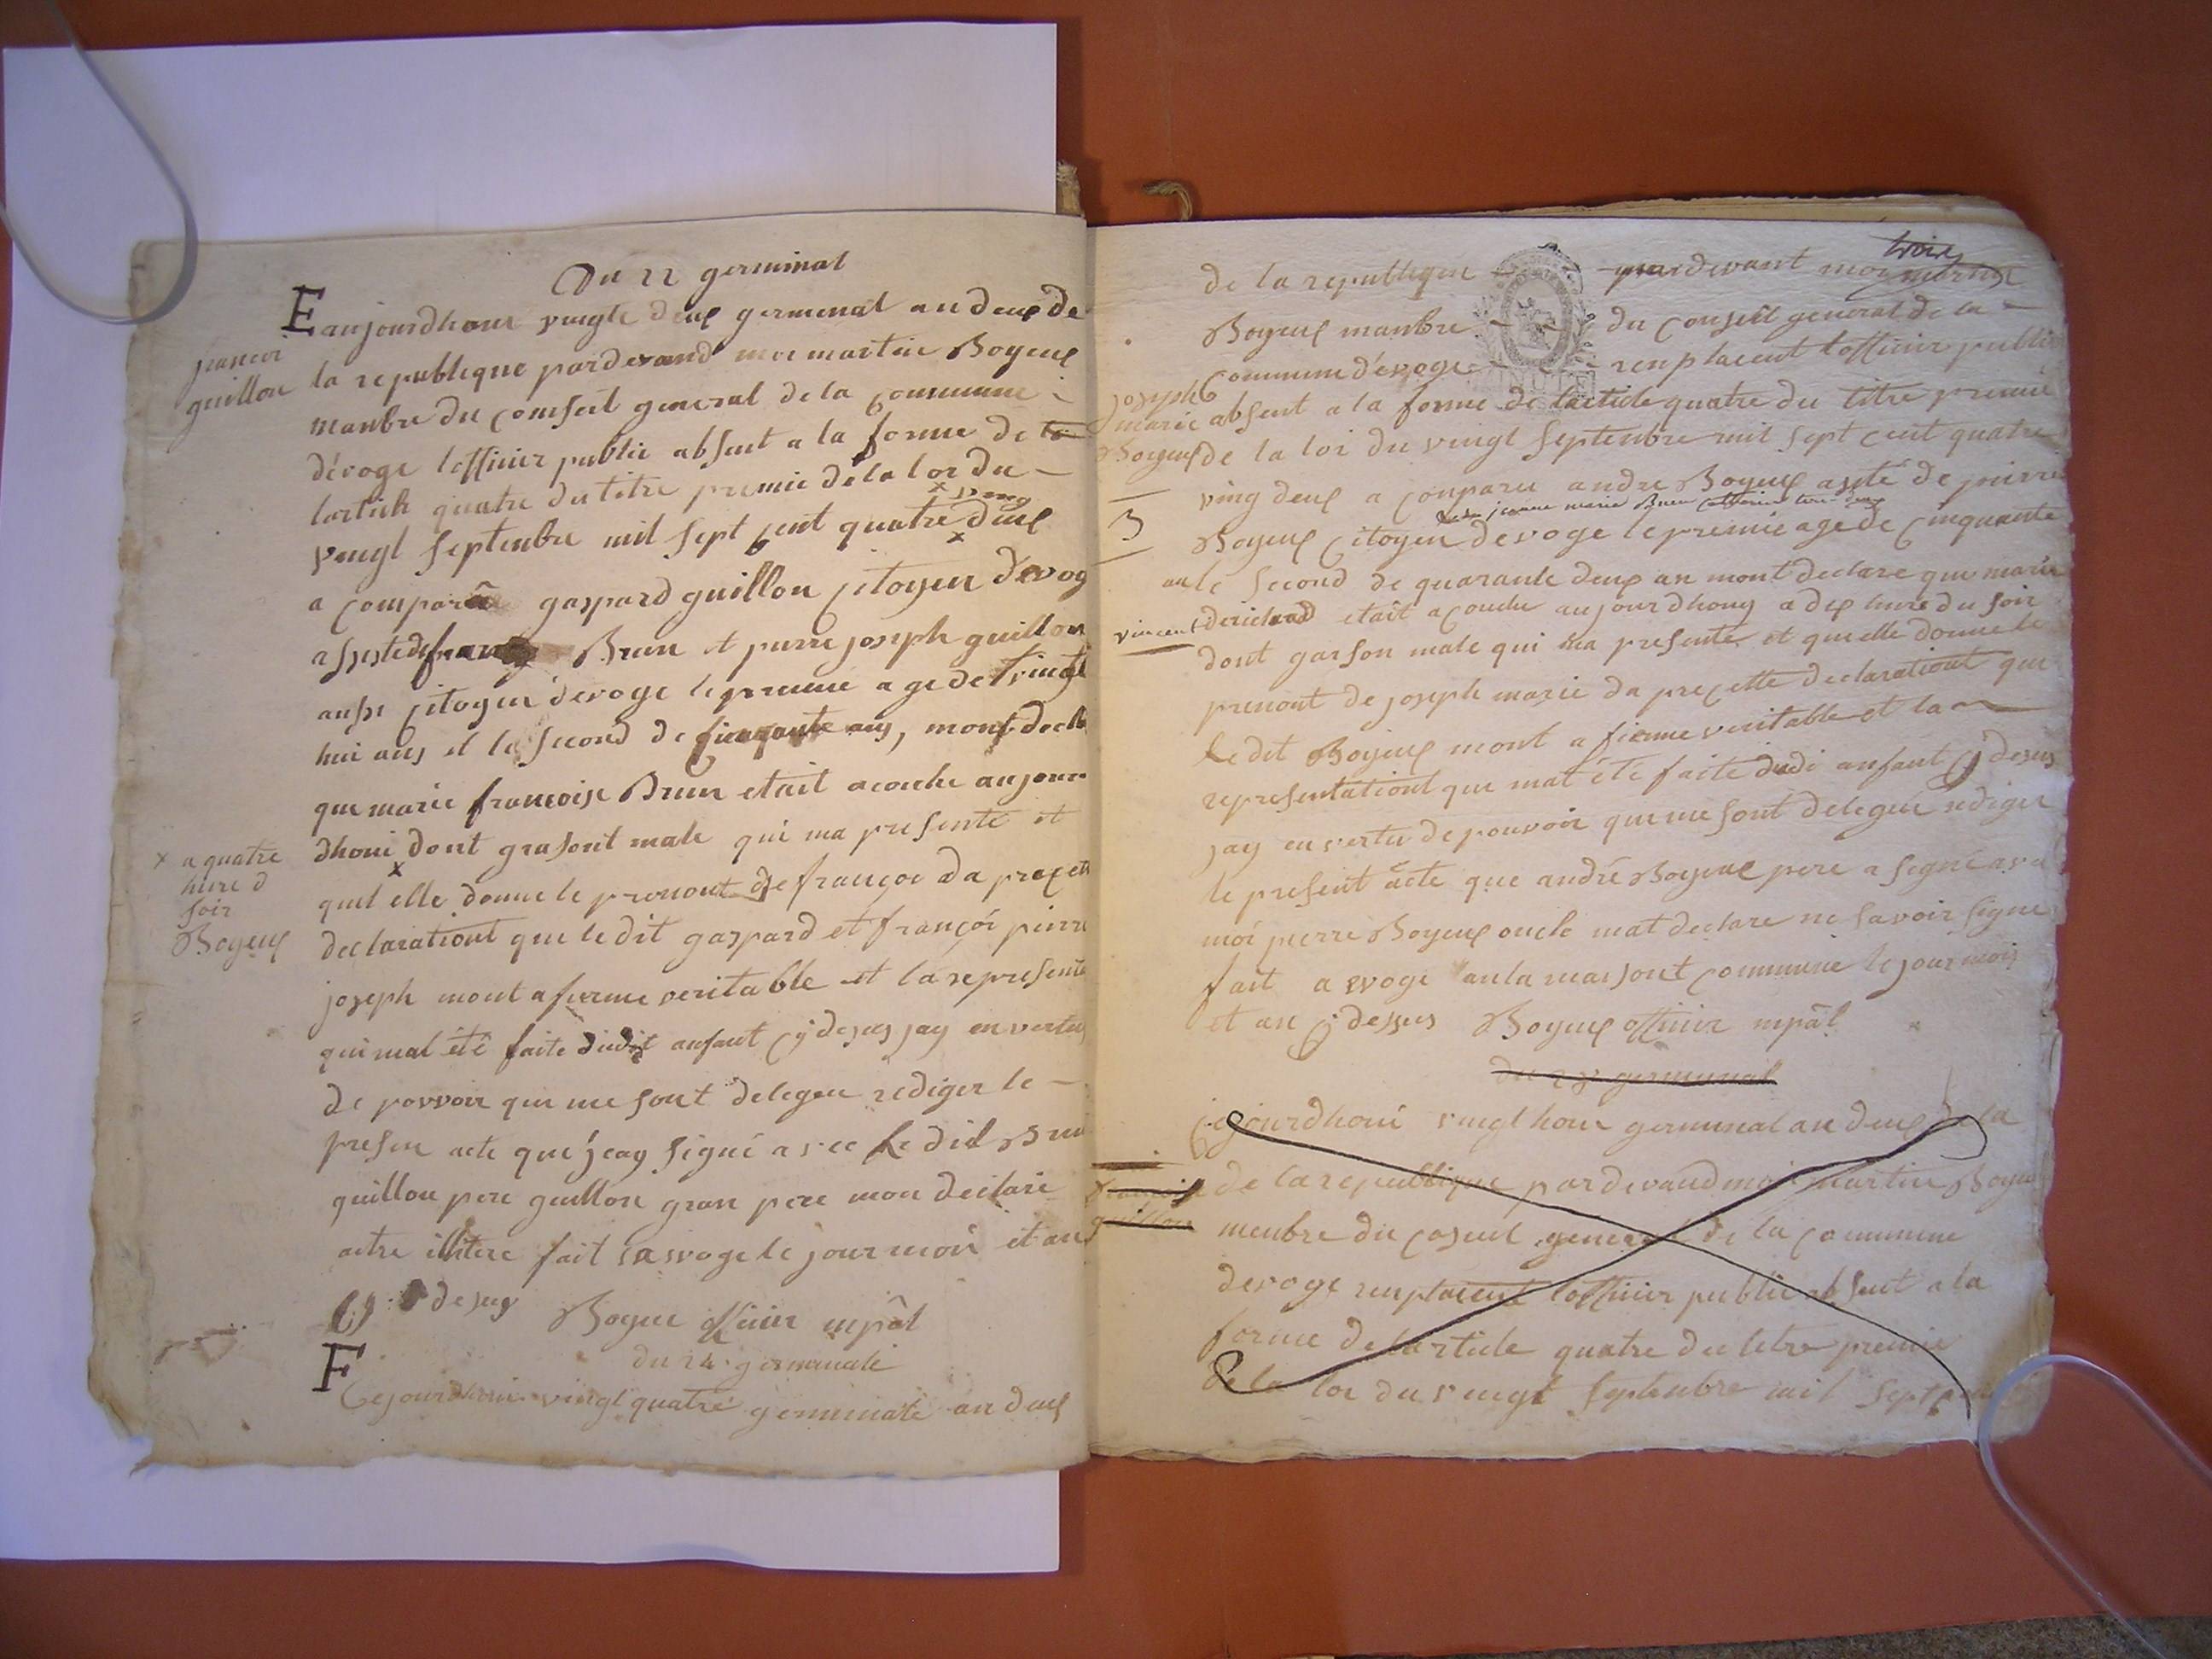 Du 22 germinal
E aujourdhoui vingte deux germinal an deux de
francoi
guillon
la republique pardevand moi martin Boyeux
manbre du conseil general de la commune
dévoge lofficier public absent a la forme de la
lartick quatre du titre premié dela loi du
vingt septenbre mil sept cent quatre ving deux
a comparu gaspard guillon citoyen devog
asyste de Brun et pierre joseph guillon
aussi citoyen devoge le premie age de vingt
hui ans et le second de ans, mont decla
que marie francoise Brun etait acouche aujour
dhoui dont grasont male qui ma presenté et
x a quatre
hure d
soir
Boyeux
quel elle donne le prenont de françoi da pres cett
declarationt que le dit gaspard et françoi pierre
joseph mont afirme veritable et la represente
qui mat été faite dudit anfant cy desus jay en vertu
de povvoir qui me sont delegue rediger le
presen acte que jeay signé avec le dit Brun
guillon pere guillon gran pere mon declare
aitre illitere fait a evoge le jour moi et an
cy desus Boyeu officier mpâl
du 24 germinale
F Cejourdhoui vingt quatre germinale an deux
trois
de la republiqeu pardevant moi martin
Boyeux manbre du conseil general de la
commune d'évoge renplacent lofficier public
joseph
marie
Boyeux
absent a la forme de larticle quatre du titre premié
de la loi du vingt septenbre mil sept cent quatre
ving deux a conparu andre Boyeux asisté de pierre
jeanne marie Brun
3
Boyeux citoyen devoge le premié age de cinquante
an le second de quarante deux an mont declare que marie
vincent derichard etait acouche aujourdhouy a dix hure du soir
dont garson male qui ma presenté et quelle donne le
prenont de joseph marie da pres cette declarationt que
le dit Boyeux mont afirme veritable et la
representationt qui mat été faite dudi anfant cy desus
jay en vertu de pouvoir que me sont delegue rediger
le present acte que andré Boyeux pere a signé avec
moi pierre Boyeux oncle mat declare ne savoir signe
fait a evoge an la maisont commune le jour mois
et an cy dessus Boyeux officier mpâl
du 28 germinal
Cejourdhoui vingt houi germinal an deux de la
francois
guillon
de la republique pardevand moi martin Boyeu
menbre du coseil general de la commune
devoge renplacent lofficier public absent a la
forme de larticle quatre du litre premie
de la loi du vingt septenbre mil sept